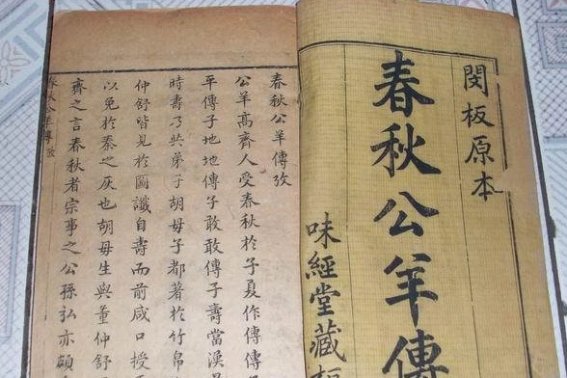 閔板原本
春秋公羊傳
味經堂藏板
春秋公羊傳攷
公羊高齊人受春秋於子夏作傳傳子
平傳子地地傳子敢敢傳子壽當漢景
時壽乃共弟子胡母子都著於竹帛
仲舒皆見於圖讖自壽而前咸口授
以免於秦之灰也胡母生與董仲舒
齊之言春秋者宗事之公孫弘亦頗
春秋公羊傳攷